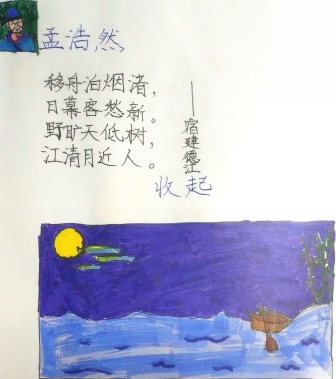 孟浩然
移舟泊烟渚，
日暮客愁新。
野旷天低树，
江清月近人。
——宿建德江
收起